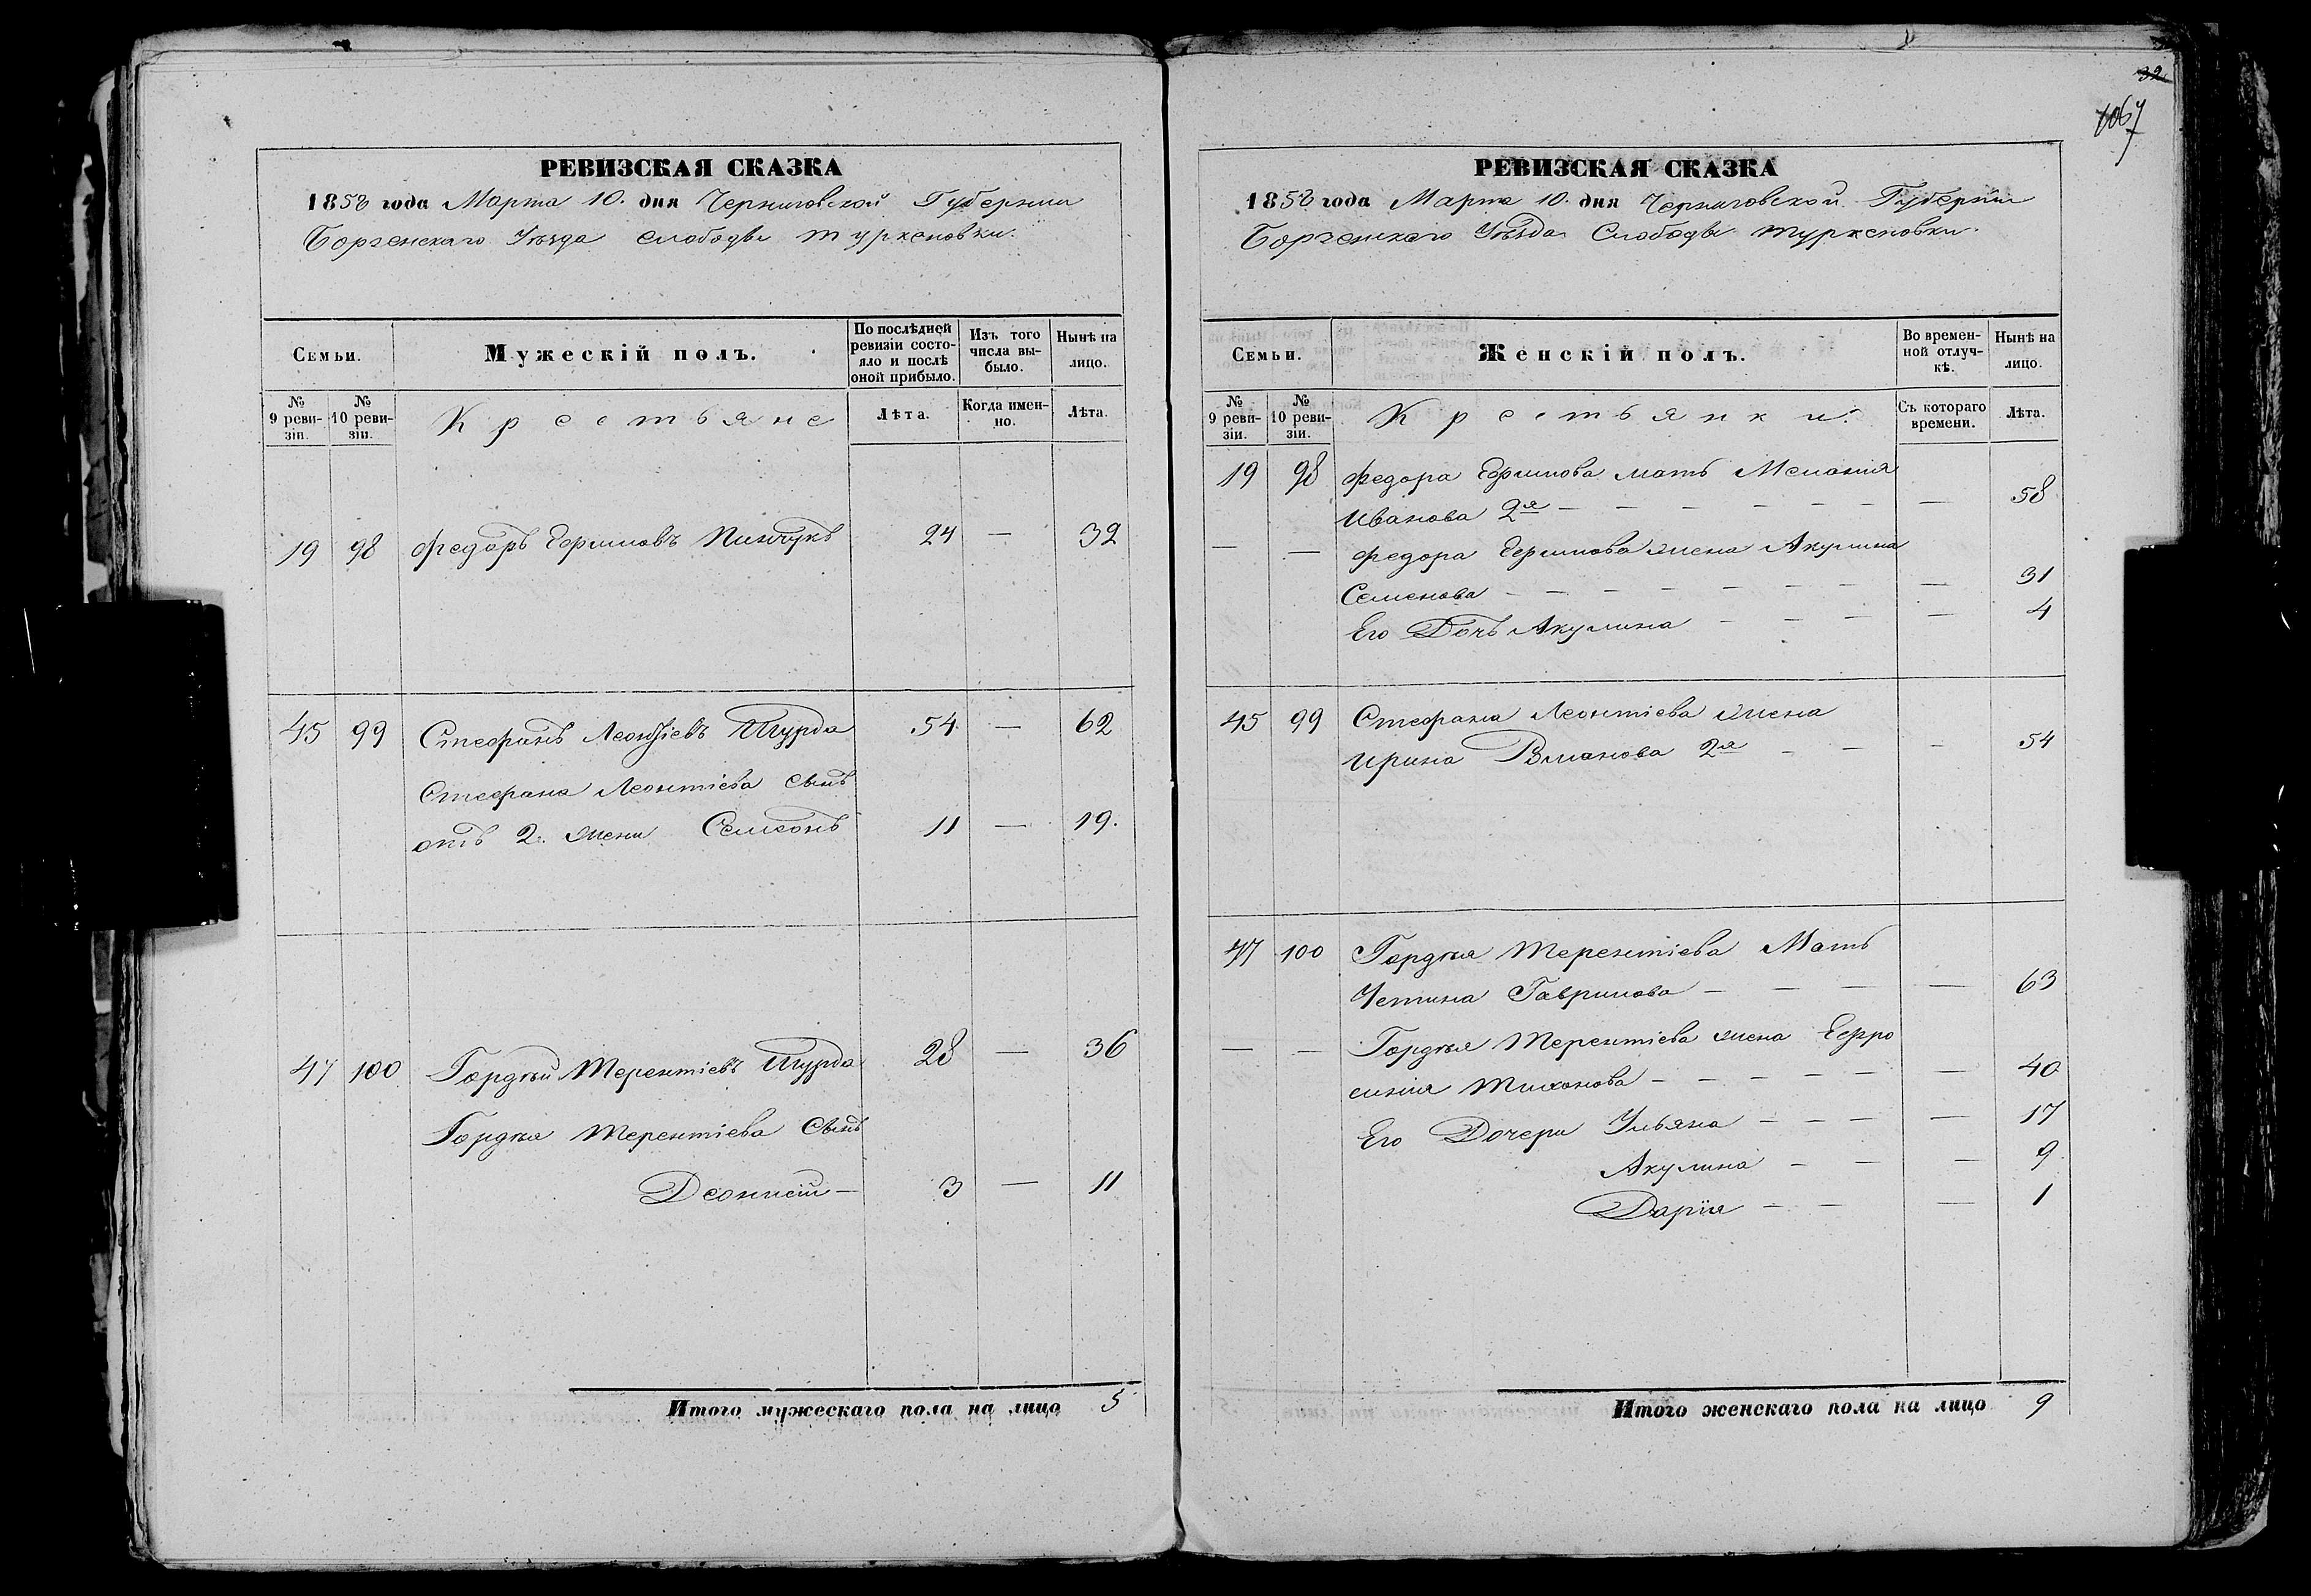 РЕВИЗСКАЯ СКАЗКА
1858 года Марта 10. дня Черниговской Губернии
Борзенскаго Уѣзда слободы Туркеновки.
Семьи.
Мужескій полъ.
По послѣдней ревизіи состояло и послѣ оной прибыло.
Изъ того числа выбыло.
Нынѣ на лицо.
№ 9 ревизіи.
№ 10 ревизіи.
Крестьяне
Лѣта.
Когда именно.
Лѣта.
19 98 Федоръ Ефимовъ Пинчукъ 24 — 32
45 99 Стефанъ Леонтіевъ Шурда 54 — 62
Стефана Леонтіева сынъ
отъ 2. жены Семеонъ 11 — 19.
47 100 Гордѣй Терентіевъ Шурда 28 — 36
Гордѣя Терентіева Сынъ
Деонисій — 3 — 11
Итого мужескаго пола на лицо 5
32
1067
РЕВИЗСКАЯ СКАЗКА
1858 года Марта 10. дня Черниговской Губерніи
Борзенскаго Уѣзда Слободы Туркеновки.
Семьи.
Женскій полъ.
Во временной отлучкѣ.
Нынѣ на лицо.
№ 9 ревизіи.
№ 10 ревизіи.
Крестьянки.
Съ котораго времени.
Лѣта.
19 98 Федора Ефимова мать Мелания
Иванова 2я — — — — — — — 58
— — Федора Ефимова жена Акулина
Семенова — — — — — — — 31
Его Дочь Акулина — — — — — 4
45 99 Стефана Леонтіева жена
Ирина Романова 2я — — — 54
47 100 Гордѣя Терентіева Мать
Устина Гаврилова — — — — 63
— — Гордѣя Терентіева жена Ефро
синія Тихонова — — — — — — 40
Его Дочери Ульяна — — — — 17
Акулина — — — 9
Дарія — — — 1
Итого женскаго пола на лицо 9